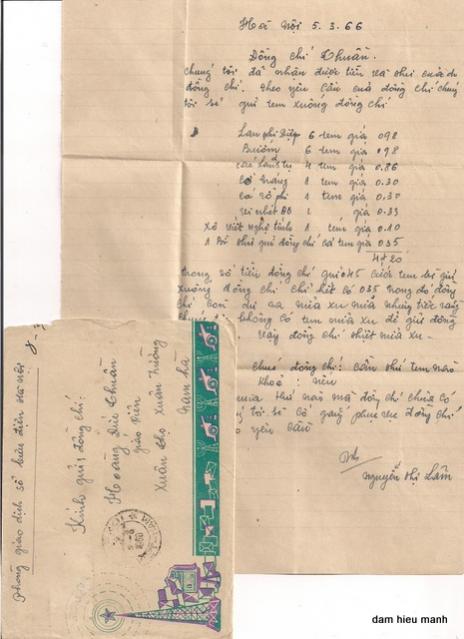 Hà Nội 5.3.66
Đồng chí Thuần.
chúng tôi đã nhận được tiền và thư của
đồng chí. theo yêu cầu của đồng chí chúng
tôi sẽ gửi tem xuống đồng chí
Lan phi điệp 6 tem giá 0,98
Bướm 6 tem giá 0,98
4 tem giá 0.86
1 tem giá 0.30
1 tem giá 0.30
giá 0.33
Xô viết nghệ tĩnh 1 tem giá 0.10
1 thư gửi đồng chí cả tem giá 0.35
4đ20
trong số tiền đồng chí gửi
xuống đồng chí chỉ hết có 0đ35 trong đó đồng
chí còn dư nửa xu nhưng tiếc rằng
không có tem nửa xu để gửi đồng
vậy đồng chí thiệt nửa xu.
chúc đồng chí: cần thứ tem nào
khoẻ: nếu
thứ nào mà đồng chí chưa có
tôi sẽ cố gắng phục vụ đồng chí
yêu cầu
Nguyễn thị Lâm
phòng giao dịch sở bưu điện Hà nội
Kính gửi, đồng chí.
Hoàng Đức Thuần
giáo viên
Xuân thọ Xuân Trường
Nam hà
dam hieu manh